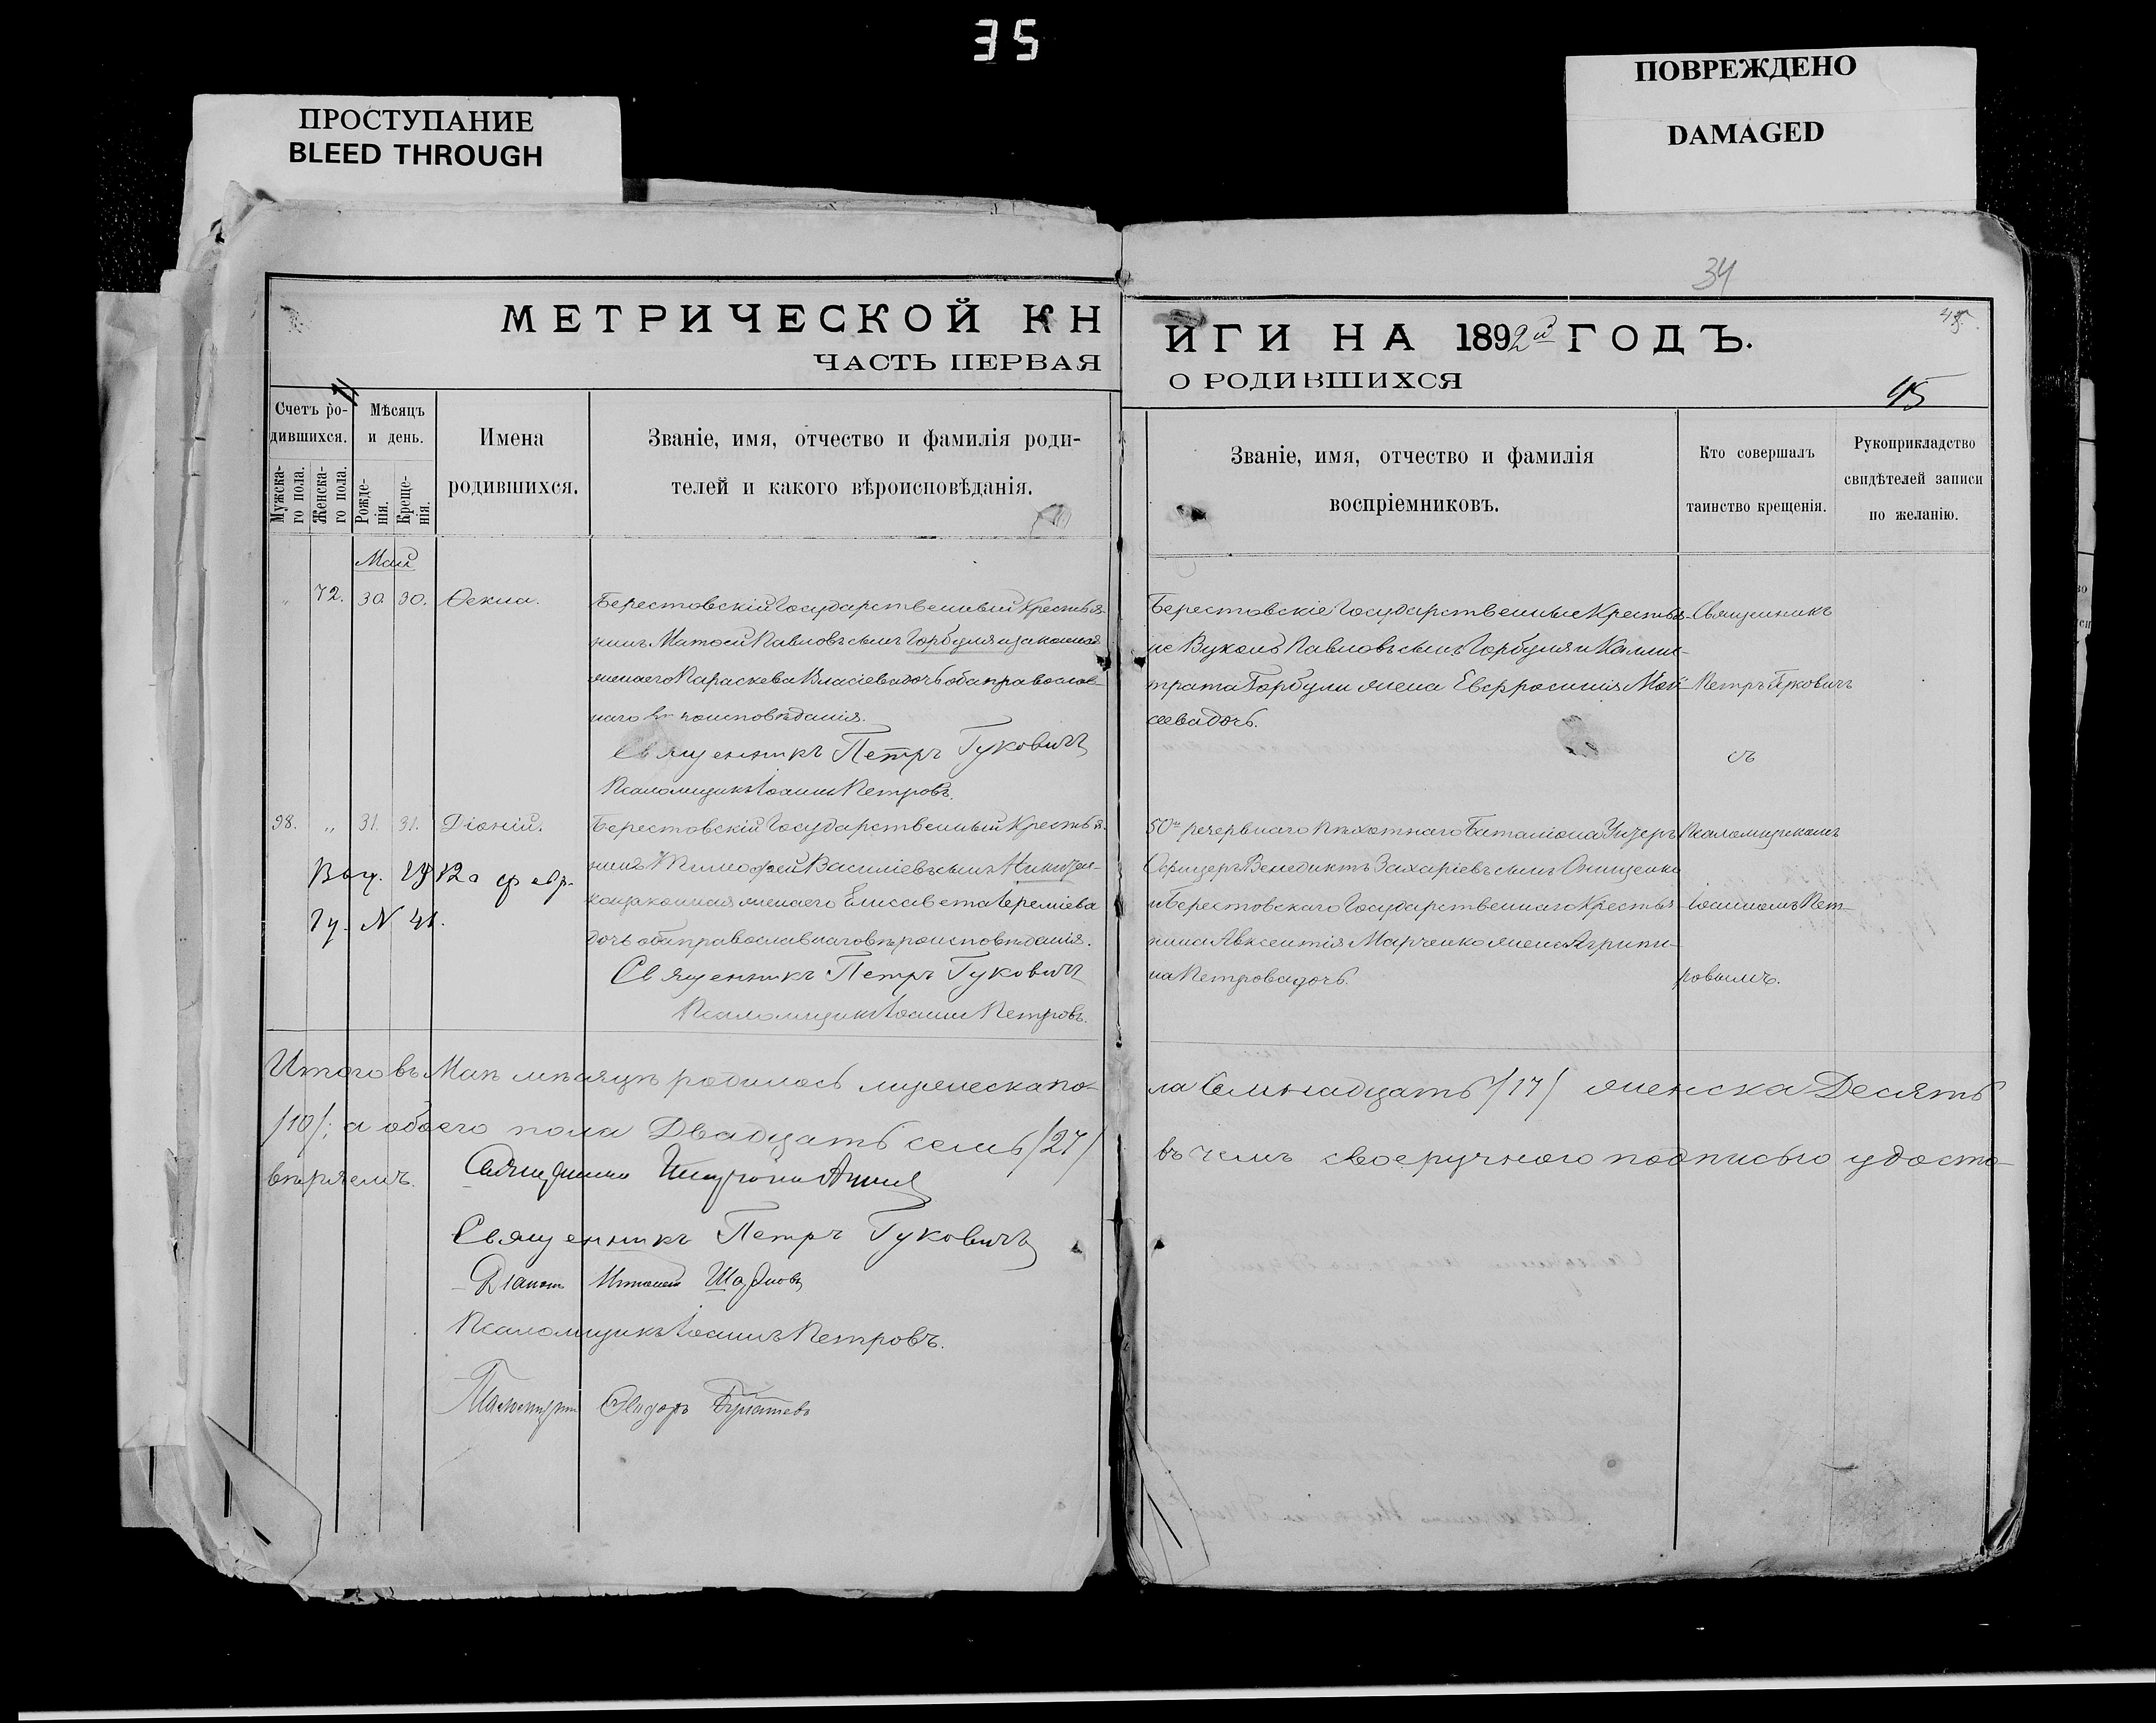 35
ПРОСТУПАНИЕ
BLEED THROUGH
ПОВРЕЖДЕНО
DAMAGED
34
МЕТРИЧЕСКОЙ КНИГИ НА 1892й ГОДЪ.
ЧАСТЬ ПЕРВАЯ О РОДИВШИХСЯ
45
Счетъ ро-
дившихся.
Мужска-
го пола.
Женска-
го пола.
Мѣсяцъ
и день.
Рожде-
нія.
Креще-
нія.
Имена
родившихся.
Званіе, имя, отчество и фамилія роди-
телей и какого вѣроисповѣданія.
Званіе, имя, отчество и фамилія
воспріемниковъ.
Кто совершалъ
таинство крещенія.
Рукоприкладство
свидѣтелей записи
по желанію.
Май
" 72. 30. 30. Ѳекла.
Берестовскій Государственный Крестья-
нинъ Матѳей Павловъ сынъ Горбуля и законная
жена его Параскева Власіева дочь оба православ-
наго вѣроисповѣданія.
Священникъ Петръ Гуковичъ
Псаломщикъ Іоаннъ Петровъ.
Берестовскіе Государственные Крестья-
не Вуколъ Павловъ сынъ Горбуля и Калли-
страта Горбули жена Евфросинія Мой-
сеева дочь.
Священникъ
Петръ Гуковичъ
съ
98. " 31. 31. Діоній.
Берестовскій Государственный Крестья-
нинъ Тимофей Василіевъ сынъ
законная жена его Елисавета Іереміева
дочь оба православнаго вѣроисповѣданія.
Священникъ Петръ Гуковичъ
Псаломщикъ Іоаннъ Петровъ.
Выд. 1912 г февр.
N 41.
50го резервнаго Пѣхотнаго Баталіона Унтеръ
Офицеръ Венедиктъ Захаріевъ сынъ Онищенко
и Берестовскаго Государственнаго Крестья-
нина Авксентія Марченко жена Агрипи-
на Петрова дочь.
Псаломщикомъ
Іоанномъ Пет-
ровымъ.
Итого въ Маѣ мѣсяцѣ родилось мужеска по-
ла Семнадцать /17/ женска Десять
/10/; а обоего пола Двадцать семь /27/
въ чемъ своеручною подписью удосто-
вѣряемъ.
Священникъ
Священникъ Петръ Гуковичъ
Діаконъ
Псаломщикъ Іоаннъ Петровъ.
Псаломщикъ